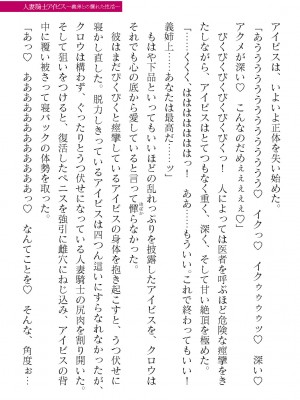 人妻騎士アイビス～義弟との爛れた性活～
アイビスは、いよいよ正体を失い始めた。
「あうううううううううう♡　イクっ♡　イクゥゥゥゥッ♡　深い♡
アクメが深い♡　こんなのだめぇぇぇぇ♡」
びくびくびくびくっ！　人によっては医者を呼ぶほど危険な痙攣をき
たしながら、アイビスはとてつもなく重く、深く、そして甘い絶頂を極めた。
「……くくく、はははははははっ！　ああ……もういい。これで終わってもいい！
義姉上……あなたは最高だ……ッ」
もはや下品といってもいいほどの乱れっぷりを披露したアイビスを、クロウは
それでも心の底から愛していると言って憚らなかった。
彼はまだびくびくと痙攣しているアイビスの身体を抱き起こすと、うつ伏せに
寝かし直した。脱力しきっているアイビスは四つん這いにすらなれなかったが、
クロウは構わず、ぐったりとうつ伏せになっている人妻騎士の尻肉を割り開いた。
そして狙いをつけると、復活したペニスを強引に雌穴にねじ込み、アイビスの背
中に覆い被さって寝バックの体勢を取った。
「あっ♡　あああああああああああっ♡　なんてことを♡　そんな、角度ぉ…